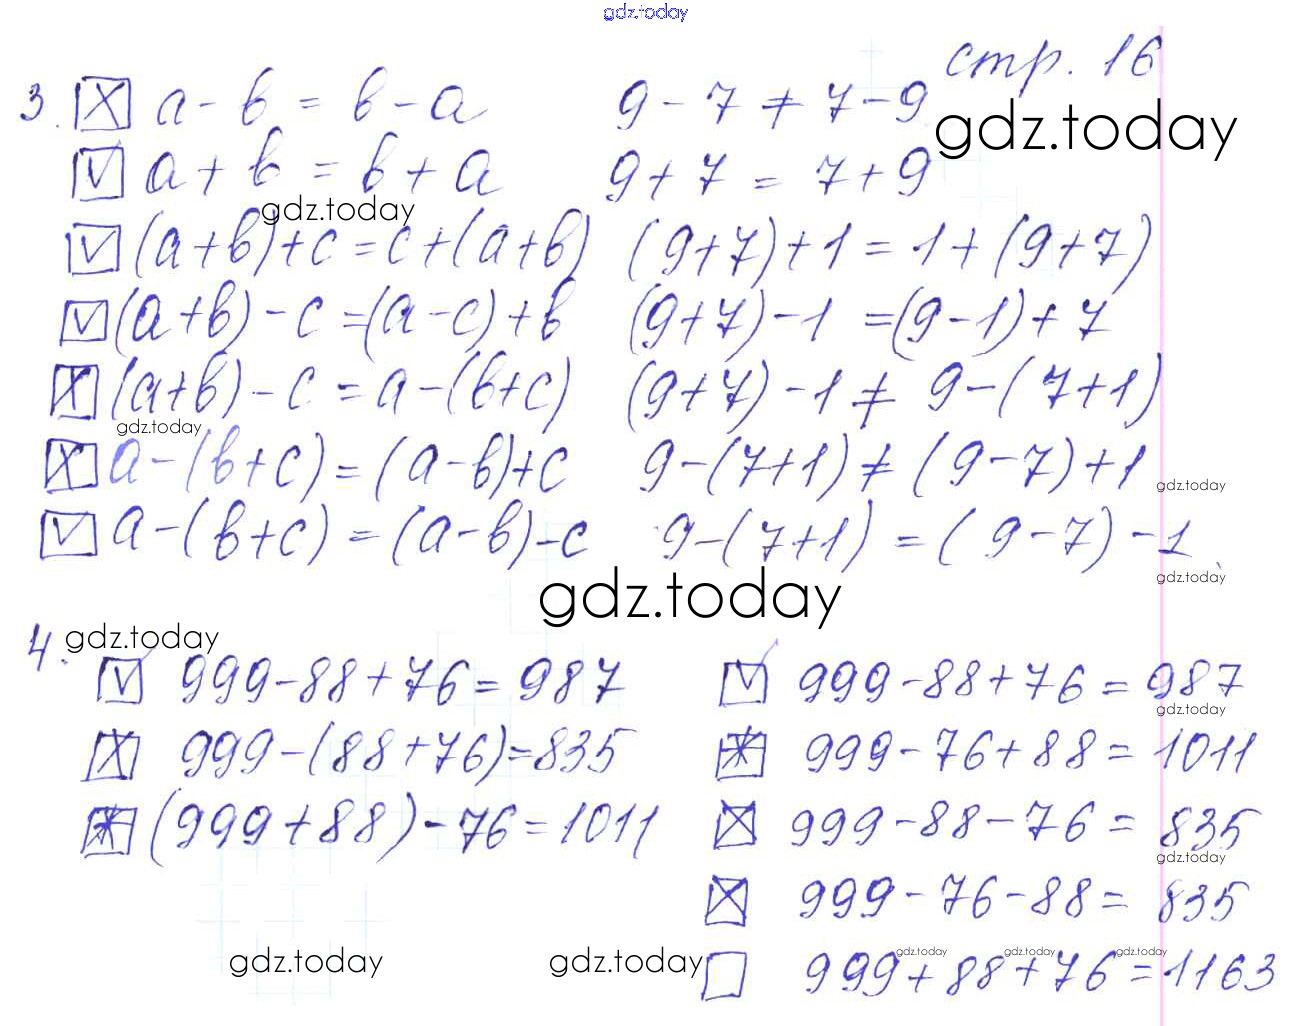 gdz.today
стр. 16
gdz.today
3. [X] a - b = b - a 9 - 7 ≠ 7 - 9
[V] a + b = b + a 9 + 7 = 7 + 9
gdz.today
[V] (a+b)+c = c+(a+b) (9+7)+1 = 1+(9+7)
[V] (a+b)-c =(a-c)+b (9+7)-1 =(9-1)+7
[X] (a+b)-c = a-(b+c) (9+7)-1 ≠ 9-(7+1)
gdz.today
[X] a-(b+c)=(a-b)+c 9-(7+1)≠(9-7)+1
gdz.today
[V] a-(b+c)=(a-b)-c 9-(7+1)=(9-7)-1
gdz.today
gdz.today
4. gdz.today
[V] 999-88+76=987 [V] 999-88+76=987
gdz.today
[X] 999-(88+76)=835 [*] 999-76+88=1011
[*] (999+88)-76=1011 [X] 999-88-76=835
gdz.today
[X] 999-76-88=835
gdz.today gdz.today
gdz.today gdz.today gdz.today
[ ] 999+88+76=1163